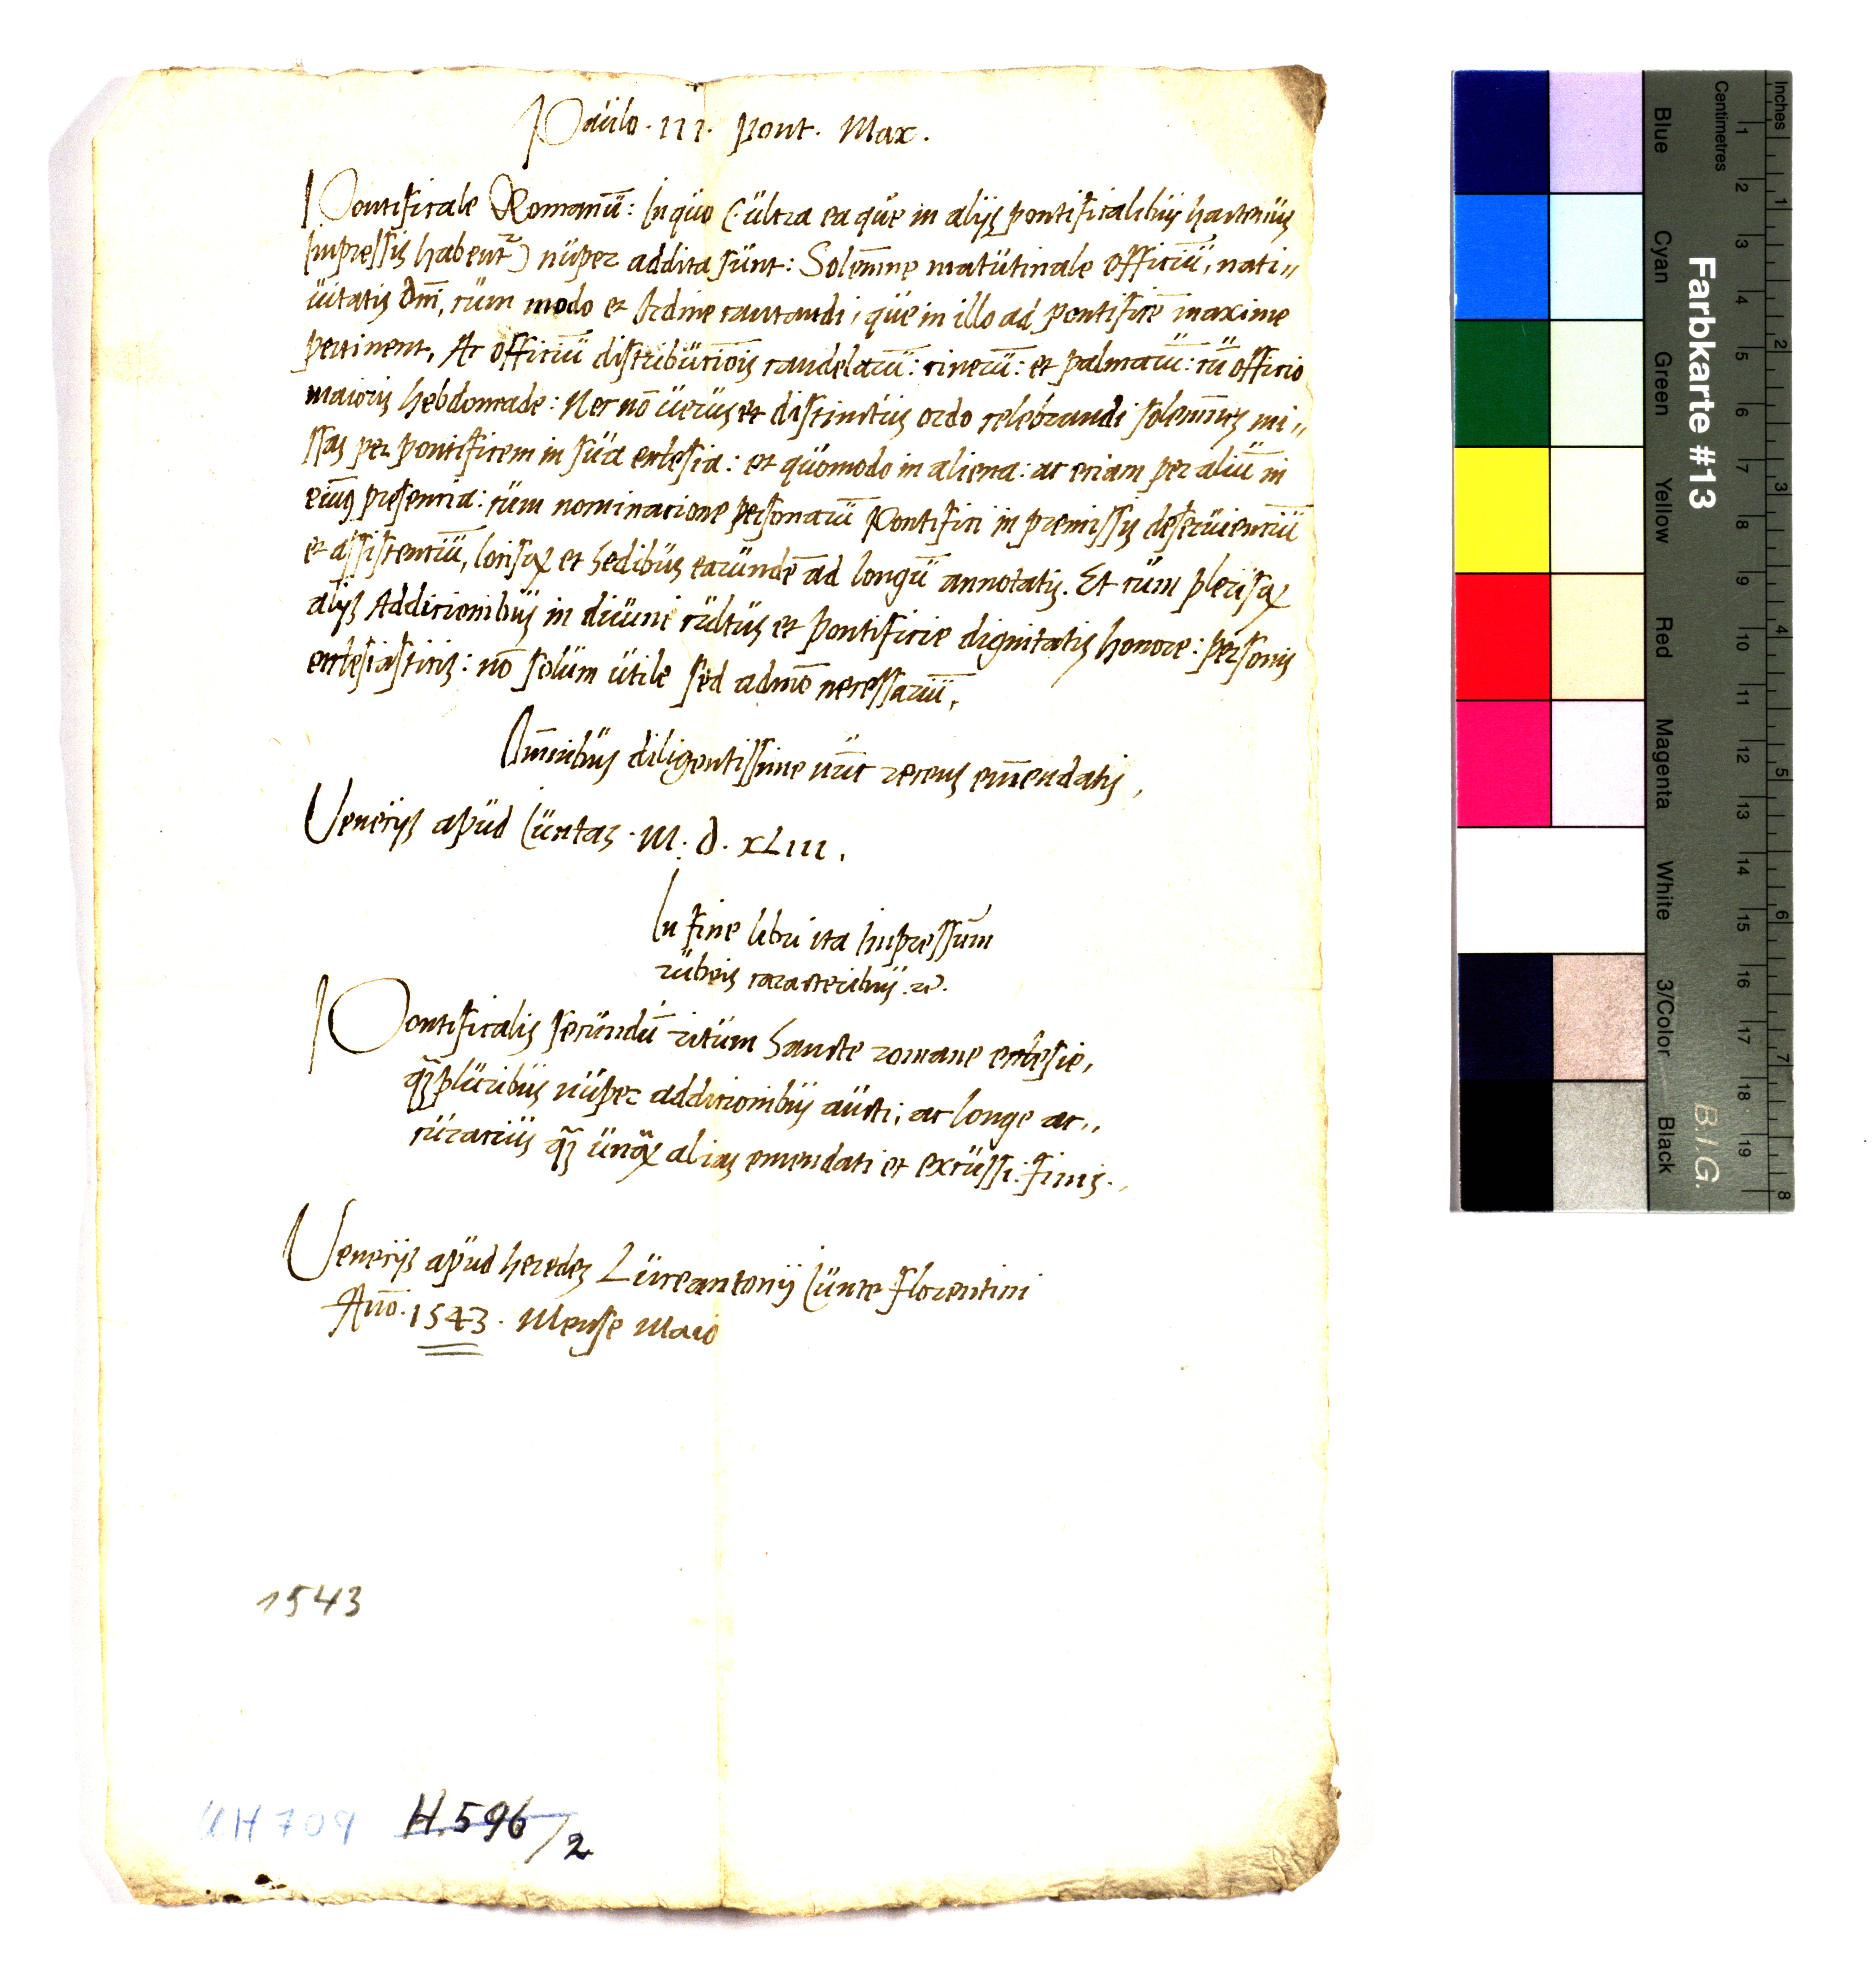 Paulo. III. Pont. Max.
Pontificale Romanū: In quo (ultra ea que in alijs pontificalibus hactenus
Impressis habent᷑) nuper addita sunt: Solēmne matutinale officiū, nati„
uitatis dn̄i, cum modo et Ordine cantandi, que in illo ad pontificē maxime
pertinent, Ac officiū distributiōis candelarū: cinerū: et palmarū: cū officio
maioris hebdomade: Nec nō uerus et distinctus ordo celebrandi solemnes mi„
ssas per pontificem in sua ecclesia: et quomodo in aliena: ac etiam per aliū in
eius presentia: cum nominatione personarū Pontifici in premissis deseruientiū
et assistentiū, locisqꝫ et sedibus earundē ad longū annotatis. Et cum plerisqꝫ
alijs Additionibus in diuini cultus et pontificie dignitatis honore: personis
ecclesiasticis: nō solum utile sed admo necessariū,
Omnibus diligentissime nūc recens emendatis,
Venetijs apud Iuntas. M. D. XLIII.
In fine libri ita Impressum
rubeis caracteribus. &.
Pontificalis secundū ritum Sancte romane ecclesie,
qꝫ pluribus nuper additionibus aucti, ac longe ac„
curatius qꝫ unqꝫ alias emendati et excussi: finis.,
Venetijs apud heredes Luceantonij Iunte florentini
Anō. 1543. Mense Maio
1543
UH 709 H. 596/2
Farbkarte #13
B.I.G.
Inches
1 2 3 4 5 6 7 8
Centimetres
1 2 3 4 5 6 7 8 9 10 11 12 13 14 15 16 17 18 19
Blue
Cyan
Green
Yellow
Red
Magenta
White
3/Color
Black